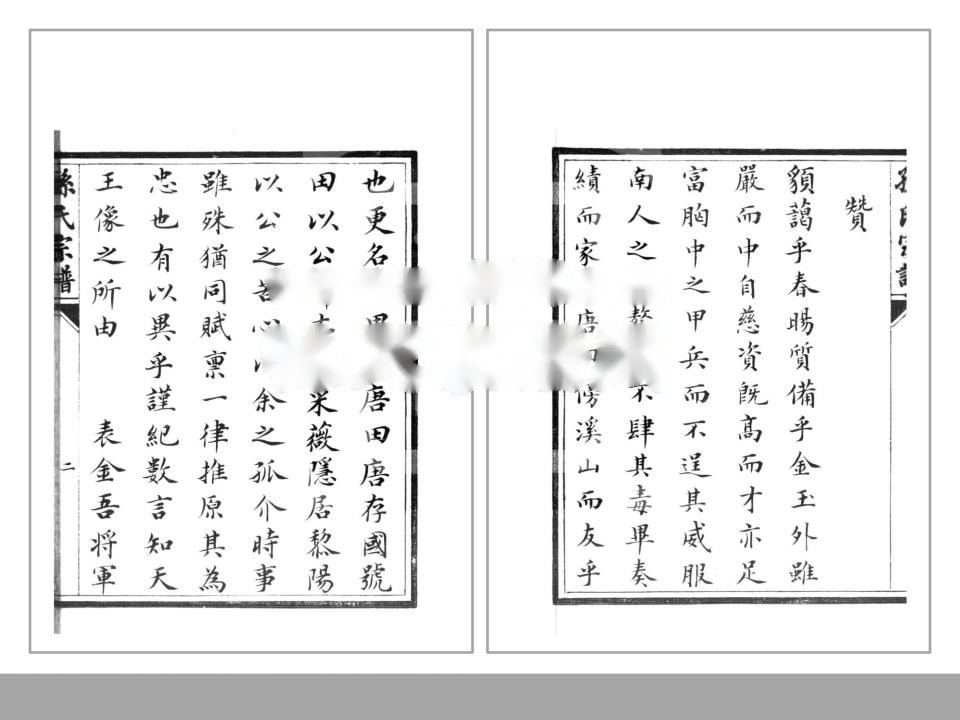 也更名唐田唐存國號
田以公采薇隱居黎陽
以公之苦心余之孤介時事
雖殊猶同賦禀一律推原其為
忠也有以異乎謹紀數言知天
王像之所由　表金吾將軍
孫氏宗譜　二
孫氏宗譜
贊
䫉藹乎春暘質備乎金玉外雖
嚴而中自慈資既高而才亦足
富胸中之甲兵而不逞其威服
南人之不肆其毒畢奏
績而家唐傍溪山而友乎